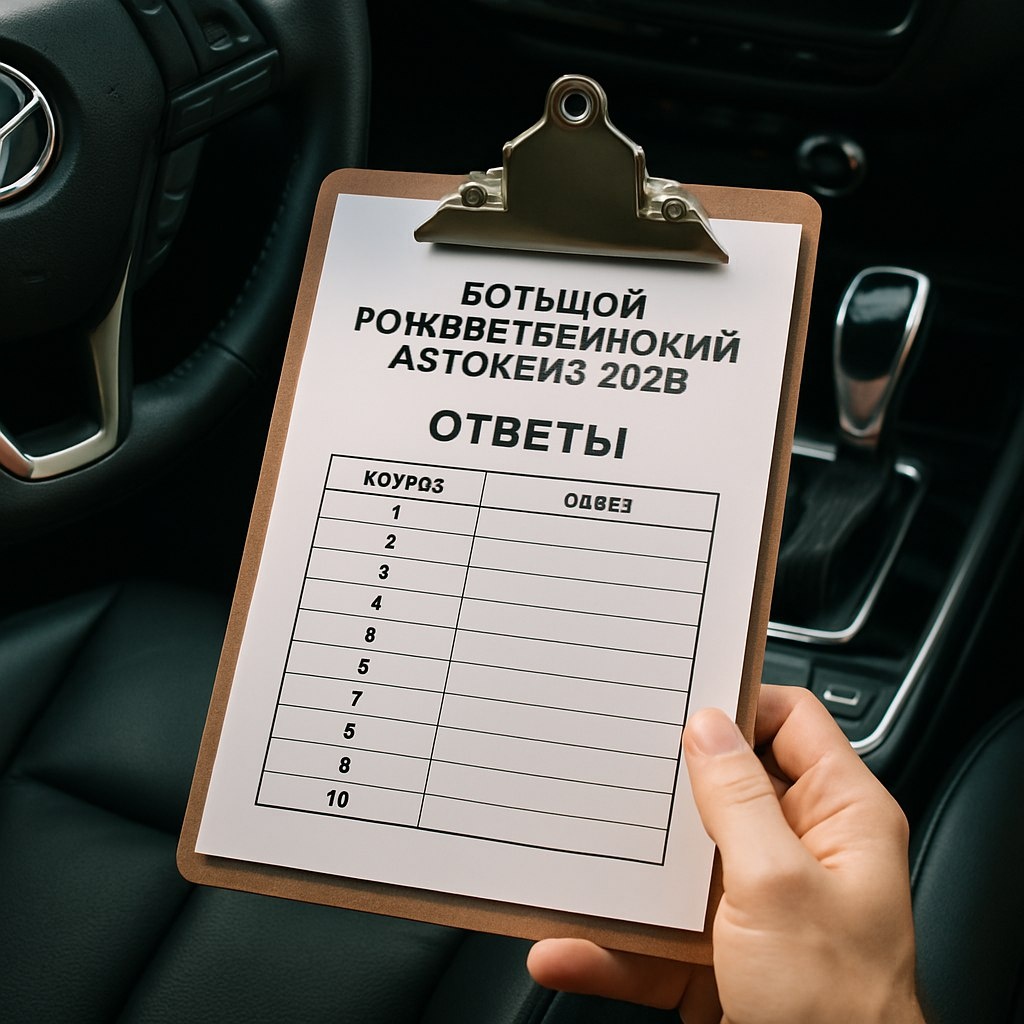 БОТЬЩОЙ
РОЖВВЕТБЕИНОКИЙ
АSТОКЕИЗ 202В
ОТВЕТЫ
КОУРОЗ ОДВЕЗ
1
2
3
4
8
5
7
5
8
10